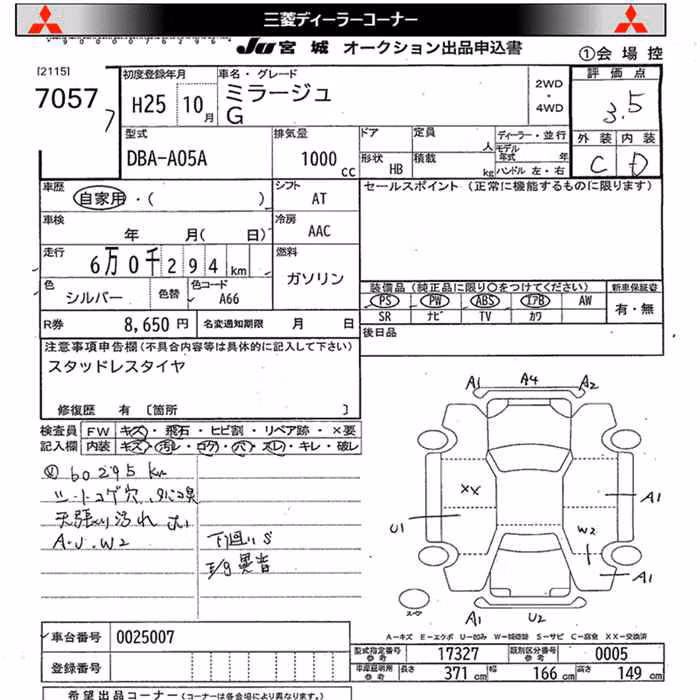 三菱ディーラーコーナー
JU 宮城 オークション出品申込書
①会場控
[2115]
7057
初度登録年月 車名・グレード
H25 10月 ミラージュ
G
2WD・4WD
評価点
3.5
外装 内装
C D
型式 排気量 ドア 定員 人 ディーラー・並行
DBA-A05A 1000cc
形状 HB 積載 kg モデル年式 年 ハンドル 左・右
車歴 自家用・( )
シフト AT
セールスポイント (正常に機能するものに限ります)
車検 年 月( 日)
冷房 AAC
走行 6万0千294km
燃料 ガソリン
色 シルバー 色替 色コード A66
装備品(純正品に限り○をつけてください) 新車保証書
PS PW ABS エアB AW 有・無
SR ナビ TV カワ
R券 8,650円 名変通知期限 月 日
後日品
注意事項申告欄(不具合内容等は具体的に記入して下さい)
スタッドレスタイヤ
修復歴 有 [箇所 ]
検査員 FW キズ・飛石・ヒビ割・リペア跡・×要
記入欄 内装 キズ・汚レ・コゲ・穴・スレ・キレ・破レ
60295km
シートコゲ穴
天張り汚れ
A.U.W2
下廻りS
E/g異音
A1 A4 A2
XX
A1
U1
W2
A1
スペア
A1 U2
A-キズ E-エクボ U-凹み W-補修跡 S-サビ C-腐食 XX-交換済
車台番号 0025007
型式指定番号 参考 17327 類別区分番号 参考 0005
登録番号
車庫証明用 参考 長さ 371cm 幅 166cm 高さ 149cm
希望出品コーナー(コーナーは各会場により異なります。)